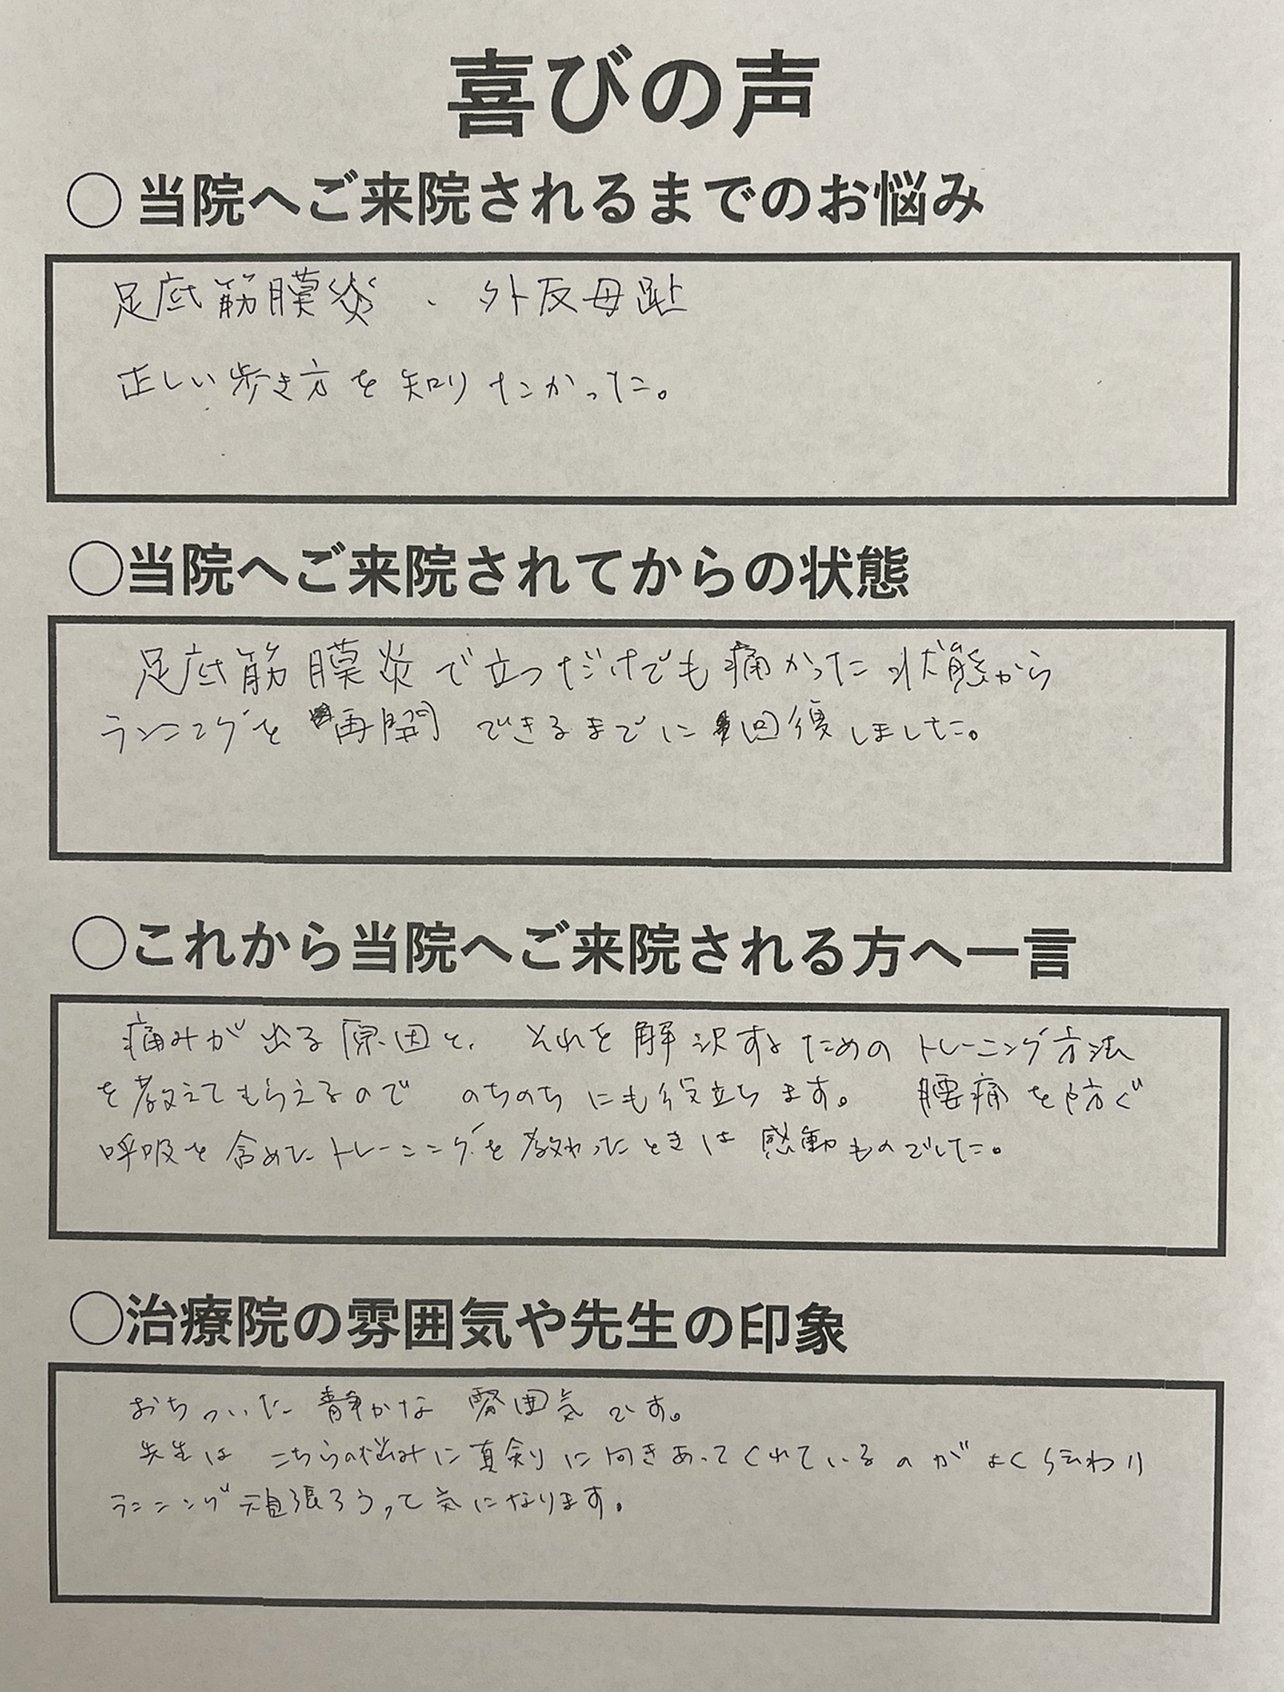 喜びの声
○当院へご来院されるまでのお悩み
足底筋膜炎、外反母趾
正しい歩き方を知りたかった。
○当院へご来院されてからの状態
足底筋膜炎で立つだけでも痛かった状態から
ランニングを再開できるまでに回復しました。
○これから当院へご来院される方へ一言
痛みが出る原因と、それを解決するためのトレーニング方法
を教えてもらえるので のちのちにも役立ちます。 腰痛を防ぐ
呼吸を含めたトレーニングを教わったときは感動ものでした。
○治療院の雰囲気や先生の印象
おちついた静かな雰囲気です。
先生はこちらの悩みに真剣に向きあってくれているのがよく伝わり
ランニング頑張ろうって気になります。